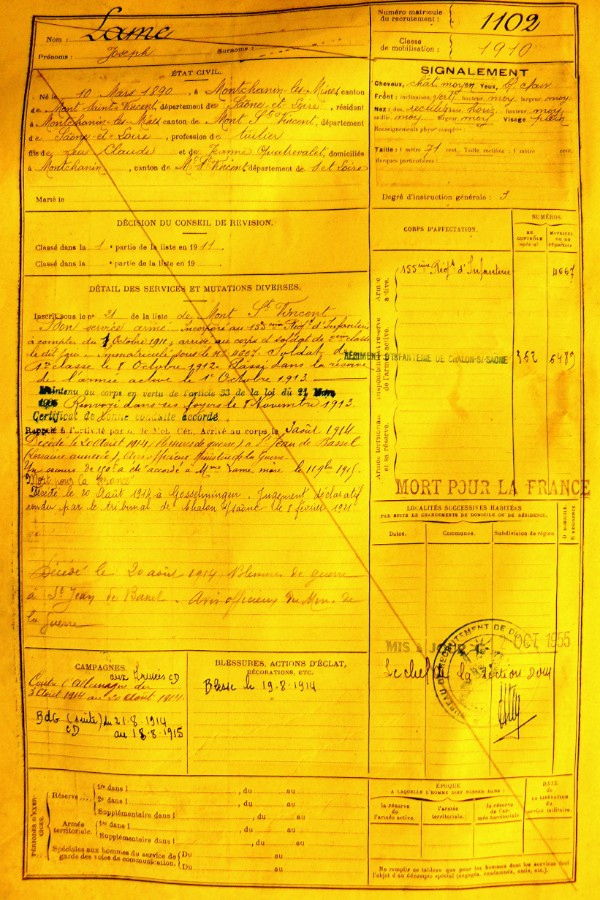 Nom : Lame
Prénoms : Joseph Surnoms :
Numéro matricule du recrutement : 1102
Classe de mobilisation : 1910
ÉTAT CIVIL.
Né le 10 Mars 1890, à Montchanin-les-Mines, canton
de Mont Saint Vincent, département de Saône-et-Loire, résidant
à Montchanin-les-Mines, canton de Mont St Vincent, département
de Saône et Loire, profession de tuilier
fils de feu Claude et de Jeanne, domiciliés
à Montchanin, canton de Mt St Vincent, département de S et Loire
Marié le
SIGNALEMENT
Cheveux, chat. moyen Yeux,
Front : inclinaison, hauteur, moy largeur, moy
Nez : dos, base, hauteur, moy
saillie, moy largeur, moy Visage
Renseignements phys. compl.
Taille : 1 mètre 71 cent. Taille rectifiée : 1 mètre cent.
Marques particulières :
Degré d'instruction générale : 3
DÉCISION DU CONSEIL DE RÉVISION.
Classé dans la 1e partie de la liste en 1911
Classé dans la e partie de la liste en 19
DÉTAIL DES SERVICES ET MUTATIONS DIVERSES.
Inscrit sous le n° 21 de la liste de Mont St Vincent
Bon service armé. Incorporé au 153eme Régt d'Infanterie
à compter du Octobre 1911, arrivé au corps et soldat de 2eme classe
le dit jour. immatriculé sous le N° Soldat de
1e classe le 8 Octobre 1912. Passé dans la réserve
de l'armée active le 1er Octobre 1913.
Maintenu au corps en vertu de l'article 33 de la loi du 21 Mars
1905 Renvoyé dans ses foyers le 8 Novembre 1913.
Certificat de bonne conduite accordé
Rappelé à l'activité par Mob. Gén. Arrivé au corps le 3 août 1914
Décédé le 20 août 1914 (blessures de guerre) à St Jean de Bassel
Lorraine annexée) Avis officieux Ministre de la Guerre
Un secours de 150f a été accordé à Mme Lame mère le 1915.
"Mort pour la France"
Décédé le 20 Août 1914 à Gosselmingen. Jugement déclaratif
rendu par le tribunal de Chalon s/Saône le 8 février 1921
Décédé le 20 août 1914 Blessures de guerre
à St Jean de Bassel. Avis officieux du Min. de
la Guerre
CORPS D'AFFECTATION.
NUMÉROS
Armée active.
153eme Régt d'Infanterie
Disponibilité et réserve de l'armée active.
RÉGIMENT D'INFANTERIE DE CHALON-SI-SAÔNE
Armée territoriale et sa réserve.
MORT POUR LA FRANCE
LOCALITÉS SUCCESSIVES HABITÉES
PAR SUITE DE CHANGEMENTS DE DOMICILE OU DE RÉSIDENCE.
Dates. Communes. Subdivision de région.
D. DOMICILE. R. RÉSIDENCE.
MIS A JOUR OCT 1955
Le chef de la Section Dury
BUREAU DE RECRUTEMENT DE
CAMPAGNES.
aux Armées CD
Contre l'Allemagne du
3 Août 1914 au 20 Août 1914.
BdG (suite) du 21.8.1914
CD au 18.8.1915
BLESSURES, ACTIONS D'ÉCLAT,
DÉCORATIONS, ETC.
Blessé le 19.8.1914
PÉRIODES D'EXERCICES.
Réserve
1re dans l , du au
2e dans l , du au
Supplémentaire dans l , du au
Armée territoriale.
1re dans l , du au
Supplémentaire dans l , du au
Spéciales aux hommes du service de garde des voies de communication.
Du au
Du au
ÉPOQUE
À LAQUELLE L'HOMME DOIT PASSER DANS :
la réserve de l'armée active.
l'armée territoriale.
la réserve de l'armée territoriale.
DATE DE LA LIBÉRATION du service militaire.
Ne remplir ce tableau que pour les hommes dont les services sont
l'objet d'un décompte spécial (engagés, condamnés, omis, etc.).